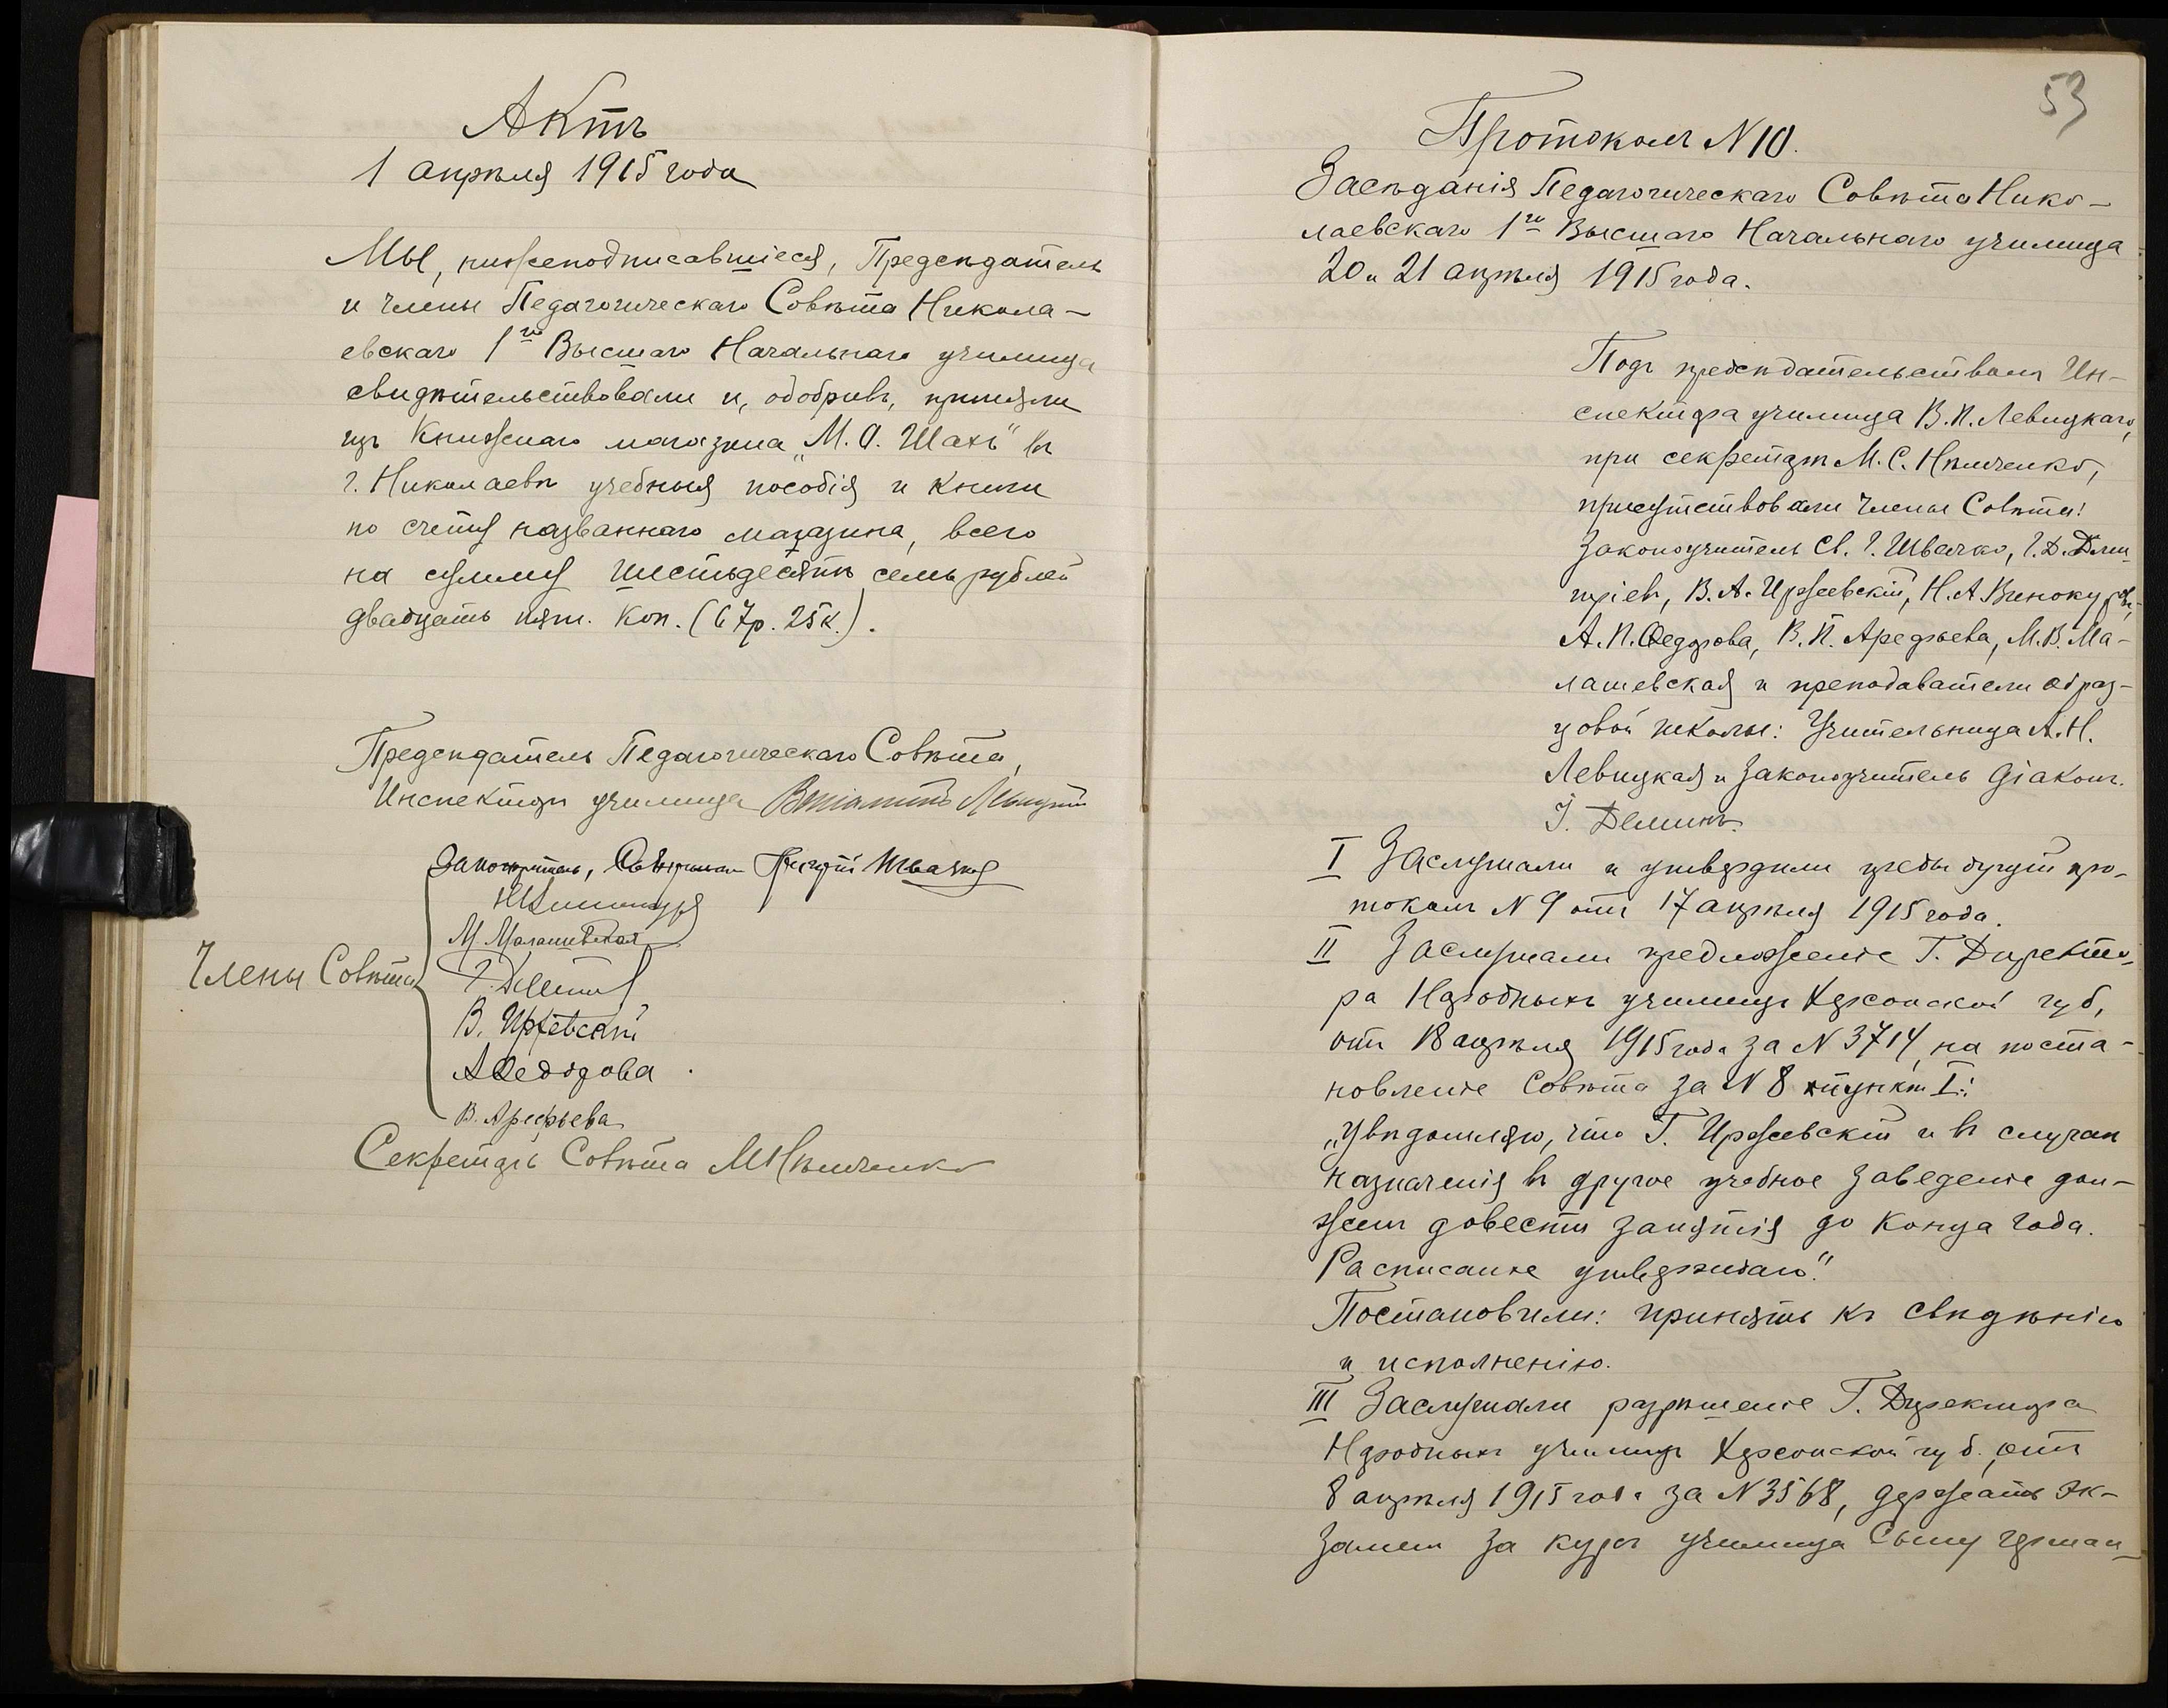 Актъ
1 апрѣля 1915 года
Мы, нижеподписавшіеся, Предсѣдатель
и члены Педагогическаго Совѣта Никола-
евскаго 1го Высшаго Начальнаго училища
свидѣтельствовали и, одобривъ, приняли
изъ Книжнаго магазина „М. О. Шахъ" въ
г. Николаевѣ учебныя пособія и книги
по счету названнаго магазина, всего
на сумму шестьдесятъ семь рублей
двадцать пят. коп. (67р. 25к.).
Предсѣдатель Педагогическаго Совѣта,
Инспекторъ училища Веніаминъ Левицкій
Законоучитель, Священникъ Григорій Швачко
М Малашевская
В. Иржевскій
А Ѳедорова
В. Арефьева
Члены Совѣта
Секретарь Совѣта М Нѣмченко
53
Протоколъ N 10.
Засѣданія Педагогическаго Совѣта Нико-
лаевскаго 1го Высшаго Начальнаго училища
20 и 21 апрѣля 1915 года.
Подъ предсѣдательствомъ Ин-
спектора училища В. П. Левицкаго,
при секретарѣ М. С. Нѣмченко,
присутствовали члены Совѣта:
Законоучитель Св. Г. Швачко, Г. Д. Дми-
тріевъ, В. А. Иржеевскій, Н. А Винокуровъ,
А. П. Ѳедорова, В. П. Арефьева, М. В. Ма-
лашевская и преподаватели образ-
цовой школы: Учительница А. Н.
Левицкая и Законоучитель Діаконъ
І. Деминъ.
I Заслушали и утвердили предыдущій про-
токолъ N 9 отъ 17 апрѣля 1915 года.
II Заслушали предложеніе Г. Директо-
ра Народныхъ училищъ Херсонской губ,
отъ 18 апрѣля 1915 года за N 3714, на поста-
новленіе Совѣта за N 8 пунктъ I:
„Увѣдомляю, что Г. Иржеевскій и въ случаѣ
назначенія въ другое учебное заведеніе дол-
женъ довести занятія до конца года.
Расписаніе утверждаю."
Постановили: принять къ свѣдѣнію
и исполненію.
III Заслушали разрѣшеніе Г. Директора
Народныхъ училищъ Херсонской губ. отъ
8 апрѣля 1915 года за N 3568, держать эк-
заменъ за курсъ училища сыну герман-